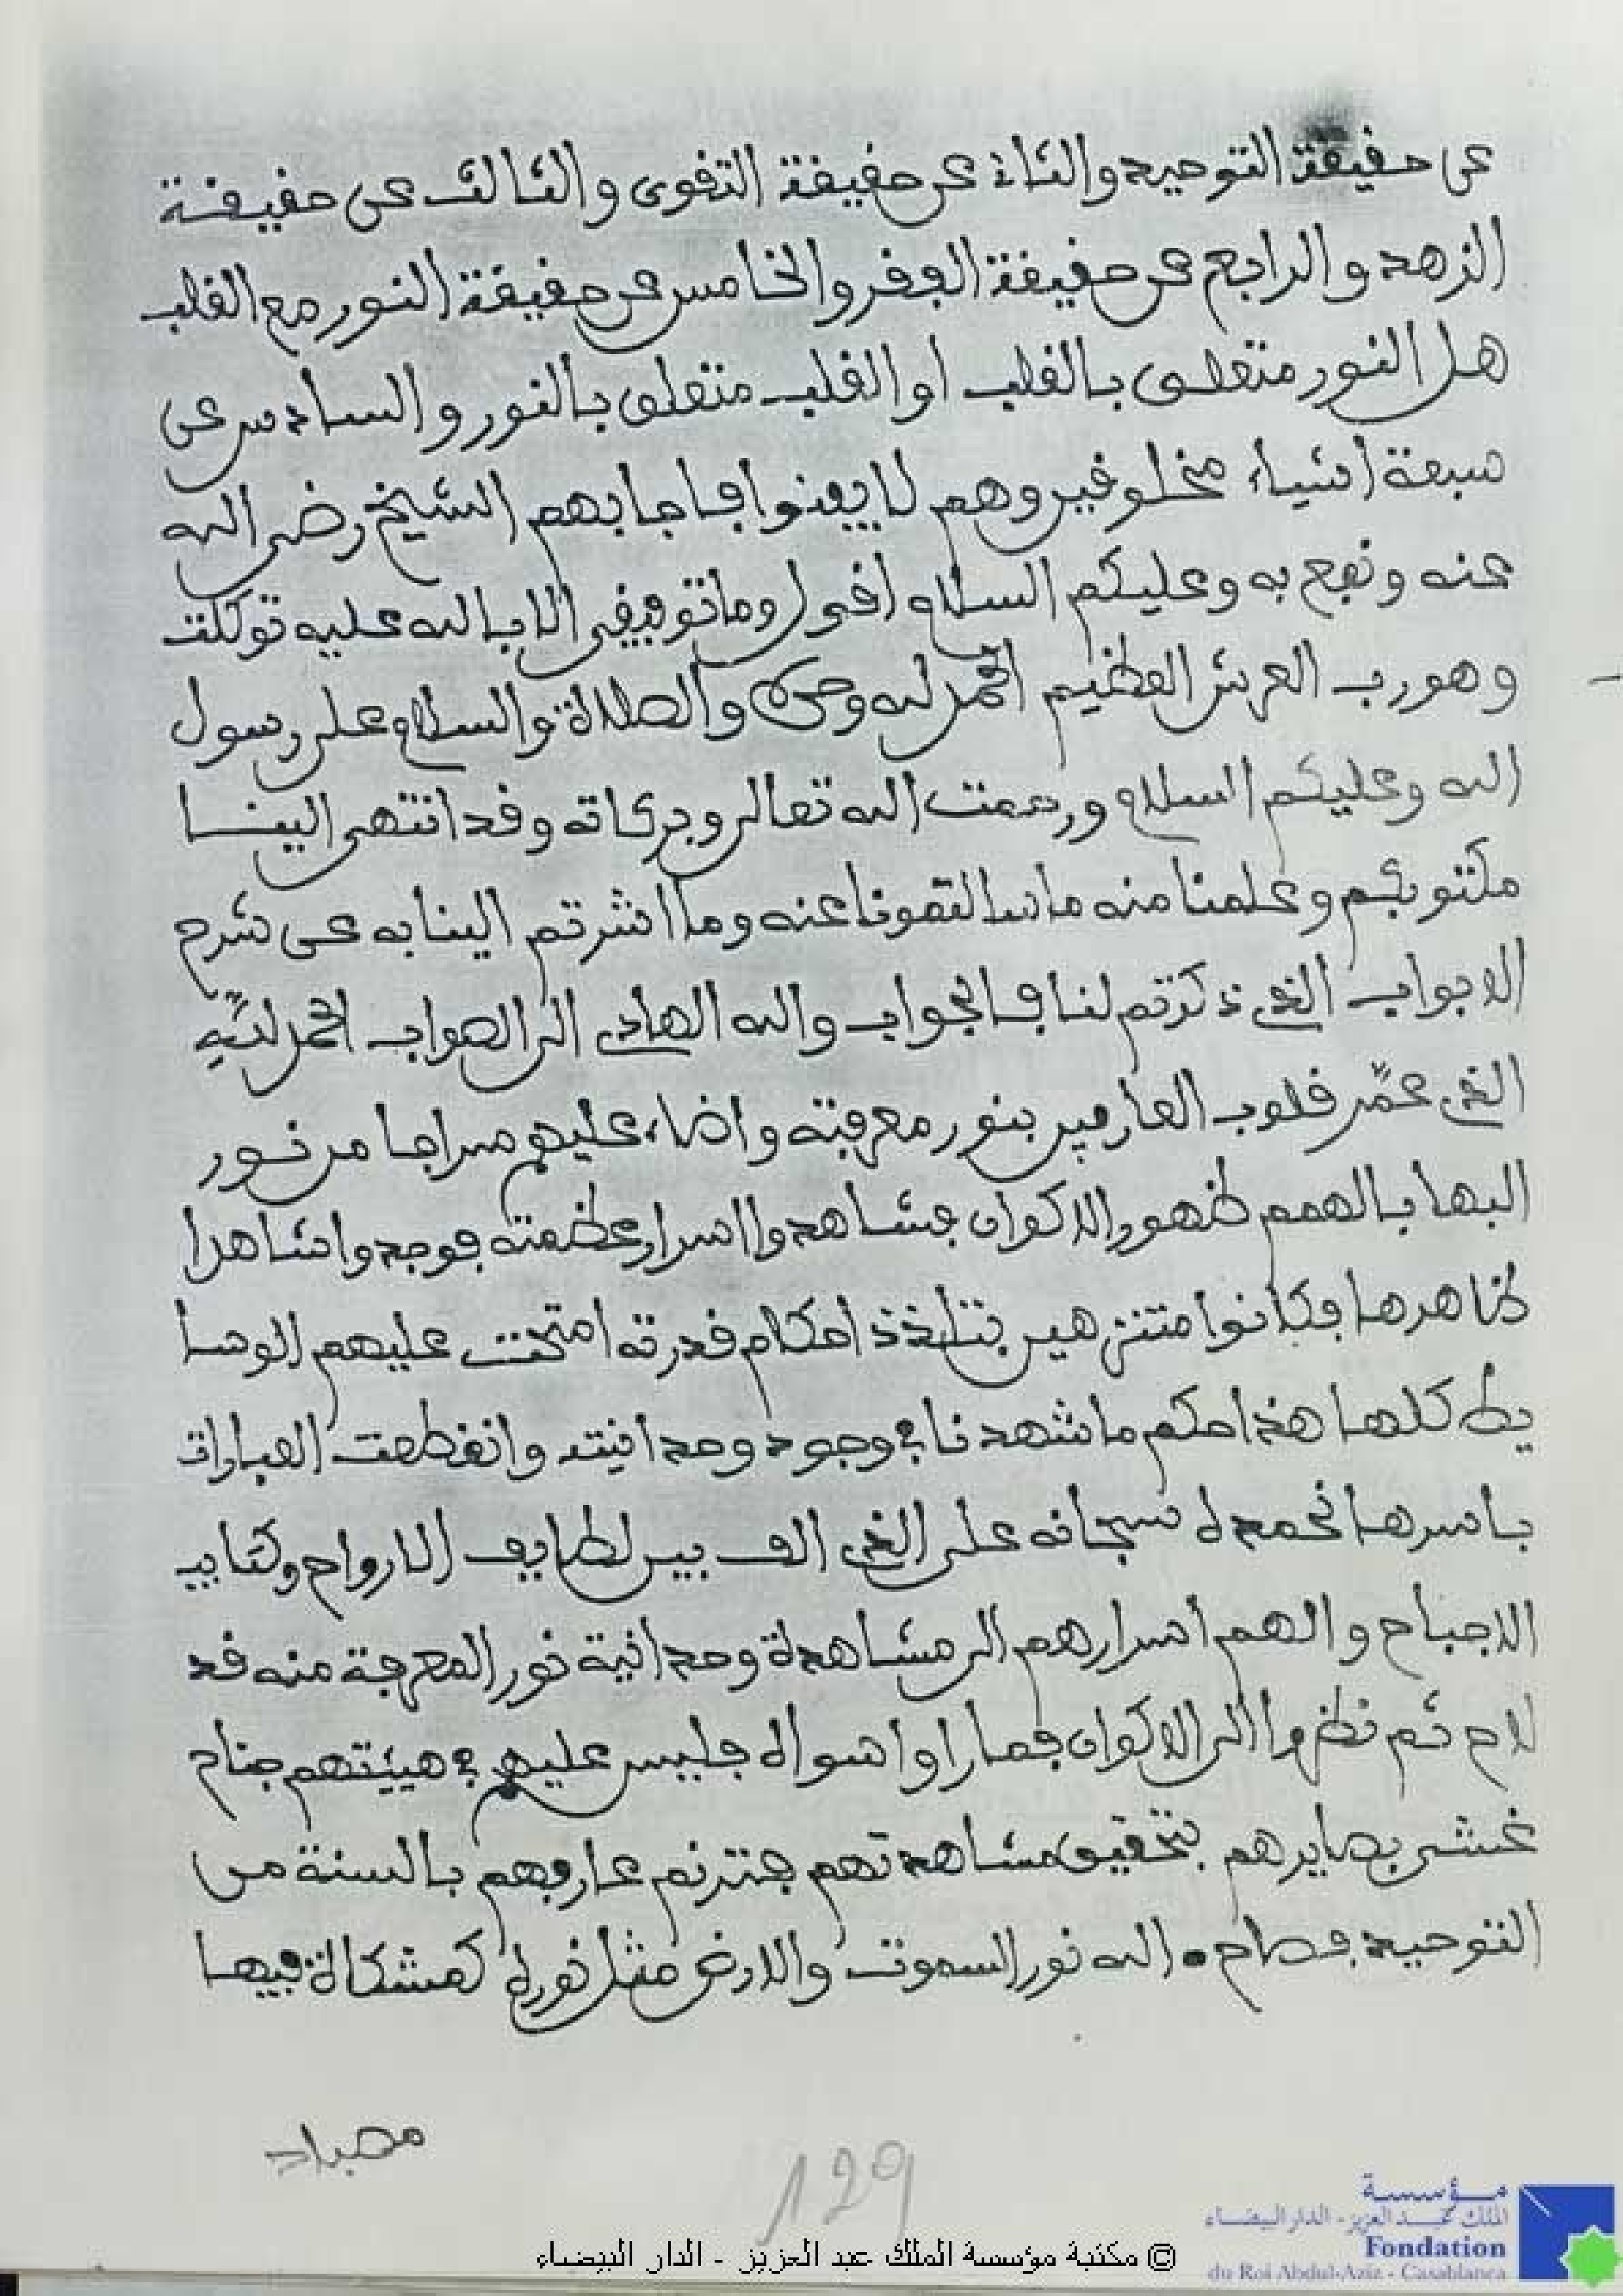 عن حقيقة التوحيد والثاني عن حقيقة التقوى والثالث عن حقيقة
الزهد والرابع عن حقيقة الفقر والخامس عن حقيقة النور مع القلب
هل النور متعلق بالقلب او القلب متعلق بالنور والسادس عن
سبعة اشياء مخلوقين وهم لا يفنوا فاجابهم الشيخ رضي الله
عنه ونفع به وعليكم السلام اقول وما توفيقي الا بالله عليه توكلت
وهو رب العرش العظيم الحمد لله وحده والصلاة والسلام على رسول
الله وعليكم السلام ورحمت الله تعالى وبركاته وقد انتهى الينا
مكتوبكم وعلمنا منه ما سالتمونا عنه وما اشرتم الينا به عن شرح
الابواب الذي ذكرتم لنا فالجواب والله الهادي الى الصواب الحمد لله
الذي عمّر قلوب العارفين بنور معرفته واضاء عليهم سراجا من نور
البها بالهمم ظهور الاكوان فشاهدوا اسرار عظمته فوجدوا شاهدا
ظاهرها فكانوا متنزهين بتلذذ احكام قدرته امتحت عليهم الوسا
يط كلها هذا حكم ما شهدنا في وجود وحدانيته وانقطعت العبارات
باسرها نحمده سبحانه على الذي الف بين لطايف الارواح وكتايب
الاجباح والهم اسرارهم الى مشاهدة وحدانية نور المعرفة منه قد
لاح ثم نظروا الى الاكوان فصاراوا سواله فليس عليهم في هيئتهم جناح
غشى بصايرهم بتحقيق مشاهدتهم فترنم عارفهم بالسنة من
التوحيد فصاح . الله نور السموت والارض مثل نوره كمشكاة فيها
مصباح
129
© مكتبة مؤسسة الملك عبد العزيز - الدار البيضاء
مؤسسة
الملك عبد العزيز - الدار البيضاء
Fondation
du Roi Abdul-Aziz - Casablanca